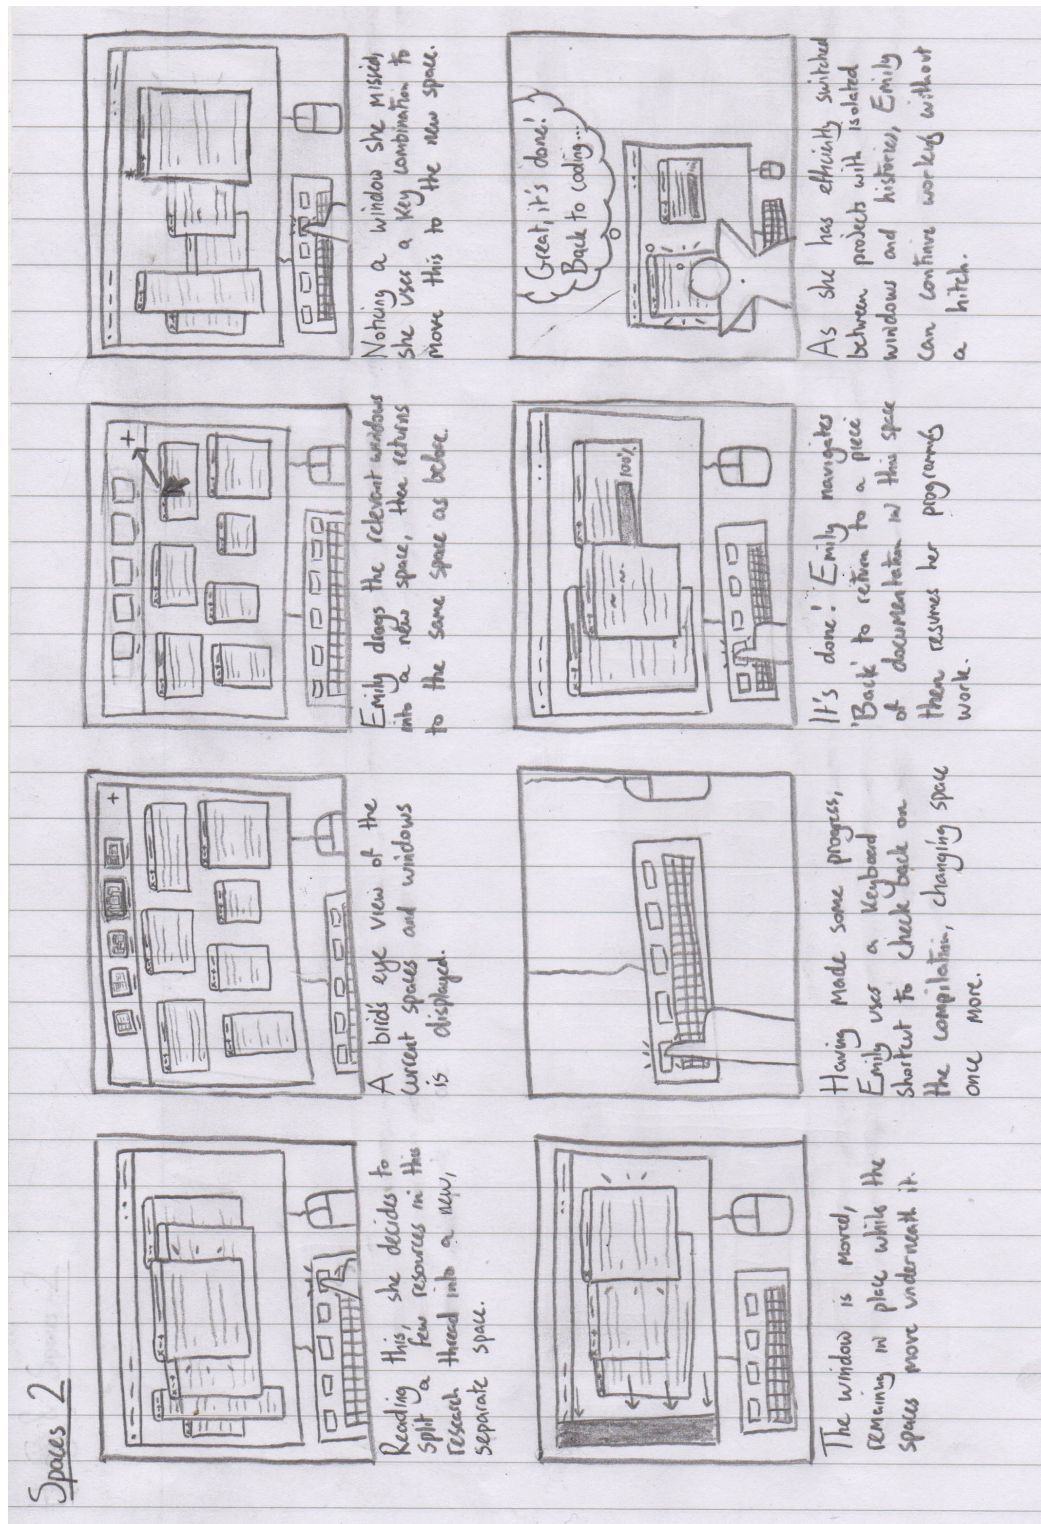 Spaces 2
Reading this, she decides to
split a few resources in this
research thread into a new,
separate space.
A bird's eye view of the
current spaces and windows
is displayed.
+
Emily drags the relevant windows
into a new space, then returns
to the same space as before.
+
Noticing a window she missed,
she uses a key combination to
move this to the new space.
The window is moved,
remaining in place whilst the
spaces move underneath it.
Having made some progress,
Emily uses a keyboard
shortcut to check back on
the compilation, changing space
once more.
100%
It's done! Emily navigates
'Back' to return to a piece
of documentation in this space
then resumes her programming
work.
Great, it's done!
Back to coding...
As she has efficiently switched
between projects with isolated
windows and histories, Emily
can continue working without
a hitch.